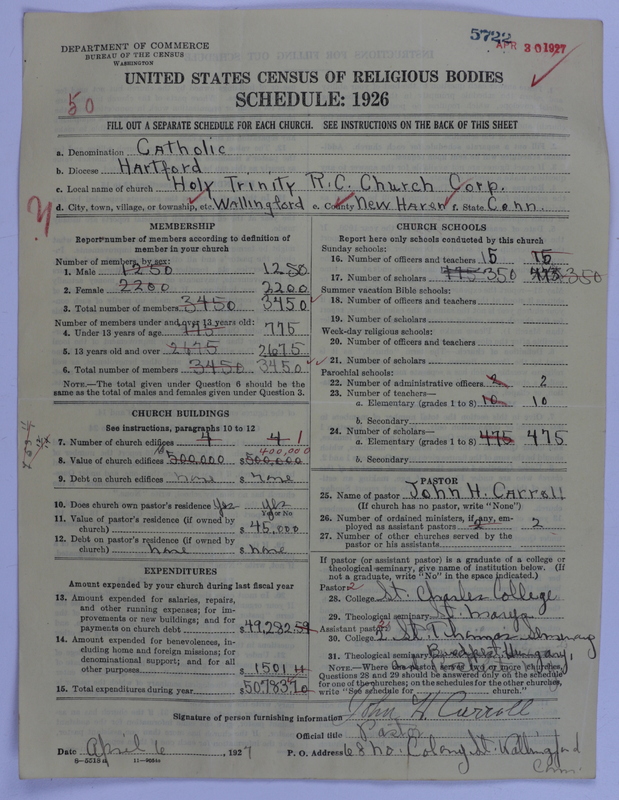 5722
APR 30 1927
DEPARTMENT OF COMMERCE
BUREAU OF THE CENSUS
WASHINGTON
UNITED STATES CENSUS OF RELIGIOUS BODIES
50
SCHEDULE: 1926
FILL OUT A SEPARATE SCHEDULE FOR EACH CHURCH. SEE INSTRUCTIONS ON THE BACK OF THIS SHEET
a. Denomination Catholic
b. Diocese Hartford
c. Local name of church Holy Trinity R.C. Church Corp.
d. City, town, village, or township, etc. Wallingford e. County New Haven f. State Conn.
MEMBERSHIP
Report number of members according to definition of
member in your church
Number of members, by sex:
1. Male 1250 1250
2. Female 2200 2200
3. Total number of members 3450 3450
Number of members under and over 13 years old:
4. Under 13 years of age 775 775
5. 13 years old and over 2675 2675
6. Total number of members 3450 3450
NOTE.—The total given under Question 6 should be the
same as the total of males and females given under Question 3.
CHURCH BUILDINGS
See instructions, paragraphs 10 to 12
7. Number of church edifices 4 4 1
400,000
8. Value of church edifices 500,000 $500,000
9. Debt on church edifices none $none
10. Does church own pastor's residence? Yes yes
Yes or No
11. Value of pastor's residence (if owned by
church) $45,000
12. Debt on pastor's residence (if owned by
church) none $none
EXPENDITURES
Amount expended by your church during last fiscal year
13. Amount expended for salaries, repairs,
and other running expenses; for im-
provements or new buildings; and for
payments on church debt $49,282.59
14. Amount expended for benevolences, in-
cluding home and foreign missions; for
denominational support; and for all
other purposes 1501.11
15. Total expenditures during year $50,783.70
CHURCH SCHOOLS
Report here only schools conducted by this church
Sunday schools:
16. Number of officers and teachers 15 15
17. Number of scholars 775 350 775 350
Summer vacation Bible schools:
18. Number of officers and teachers
19. Number of scholars
Week-day religious schools:
20. Number of officers and teachers
21. Number of scholars
Parochial schools:
22. Number of administrative officers 2 2
23. Number of teachers—
a. Elementary (grades 1 to 8) 10 10
b. Secondary
24. Number of scholars—
a. Elementary (grades 1 to 8) 475 475
b. Secondary
PASTOR
25. Name of pastor John H. Carroll
(If church has no pastor, write "None")
26. Number of ordained ministers, if any, em-
ployed as assistant pastors 2 2
27. Number of other churches served by the
pastor or his assistants
If pastor (or assistant pastor) is a graduate of a college or
theological seminary, give name of institution below. (If
not a graduate, write "No" in the space indicated.)
Pastor:
28. College St. Charles College
29. Theological seminary St. Marys
Assistant pastor:
30. College St. Thomas Seminary
31. Theological seminary Budapest Hungary,
NOTE.—Where one pastor served two or more churches,
Questions 28 and 29 should be answered only on the schedule
for one of the churches; on the schedules for the other churches,
write "See schedule for church."
Signature of person furnishing information John H. Carroll
Official title Pastor
Date April 6, 1927 P. O. Address 68 No. Colony St. Wallingford
Conn.
8—5518a 11—9054a